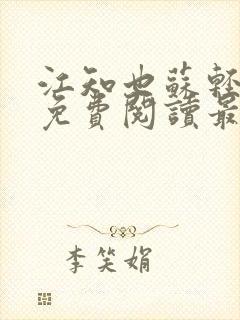 江知也蘇輕
免費閱讀最
李笑娟